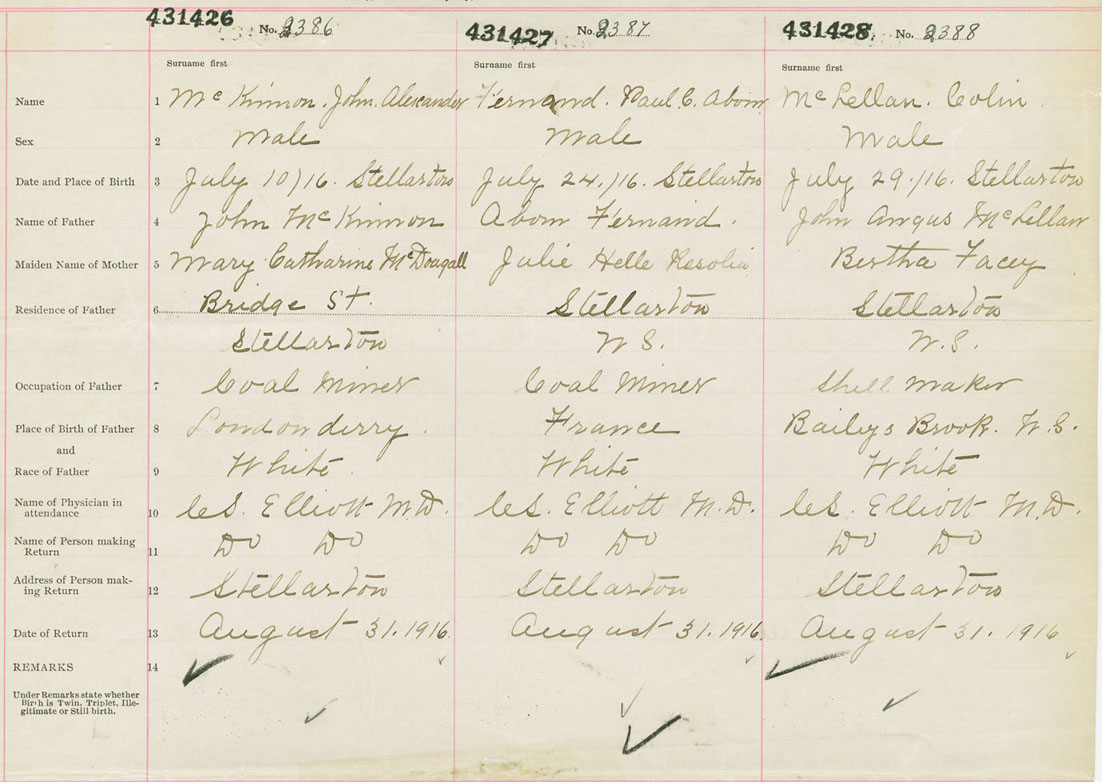 431426 No. 2386 431427 No. 2387 431428 No. 2388
Surname first Surname first Surname first
Name 1 Mc Kinnon, John. Alexander Fernand. Paul C. Abom McLellan. Colin
Sex 2 Male Male Male
Date and Place of Birth 3 July 10/16. Stellarton July 24./16. Stellarton July 29./16. Stellarton
Name of Father 4 John McKinnon Abom Fernand. John Angus McLellan
Maiden Name of Mother 5 Mary Catharine McDougall Julie Helle Bertha Facey
Residence of Father 6 Bridge St. Stellarton Stellarton
Stellarton N S. N.S.
Occupation of Father 7 Coal Miner Coal Miner Shell Maker
Place of Birth of Father 8 Londonderry. France Baileys Brook. N.S.
and
Race of Father 9 White. White White
Name of Physician in
attendance 10 C.S. Elliott M.D. C.S. Elliott M.D. C.S. Elliott M.D.
Name of Person making
Return 11 Do Do Do Do Do Do
Address of Person mak-
ing Return 12 Stellarton Stellarton Stellarton
Date of Return 13 August 31. 1916. August 31. 1916. August 31. 1916
REMARKS 14
Under Remarks state whether
Birth is Twin, Triplet, Ille-
gitimate or Still birth.